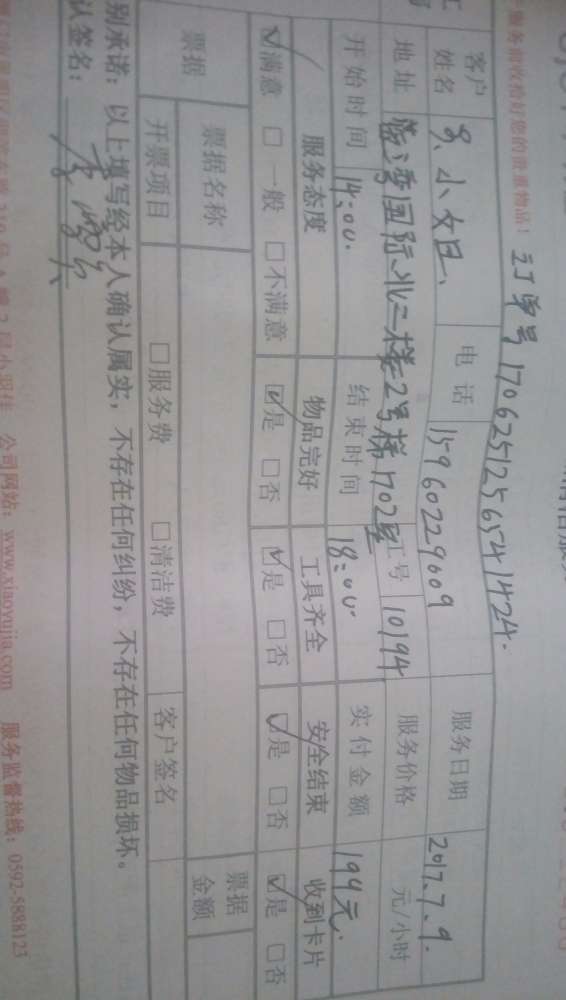 服务前收拾好您的贵重物品！ 订单号 170625125654 1424.
客户姓名 电话 15960229609 服务日期 2017.7.9.
地址 湾国际北二楼2号梯1702室 工号 10194 服务价格 元/小时
开始时间 14:00. 结束时间 18:00. 实付金额 194元.
服务态度 物品完好 工具齐全 安全结束 收到卡片
☑满意 □一般 □不满意 ☑是 □否 ☑是 □否 ☑是 □否 ☑是 □否
票据 票据名称 票据金额
开票项目 □服务费 □清洁费 客户签名
别承诺：以上填写经本人确认属实，不存在任何纠纷，不存在任何物品损坏。
认签名：
公司网站：www.xiaoyujia.com 服务监督热线：0592-5888123